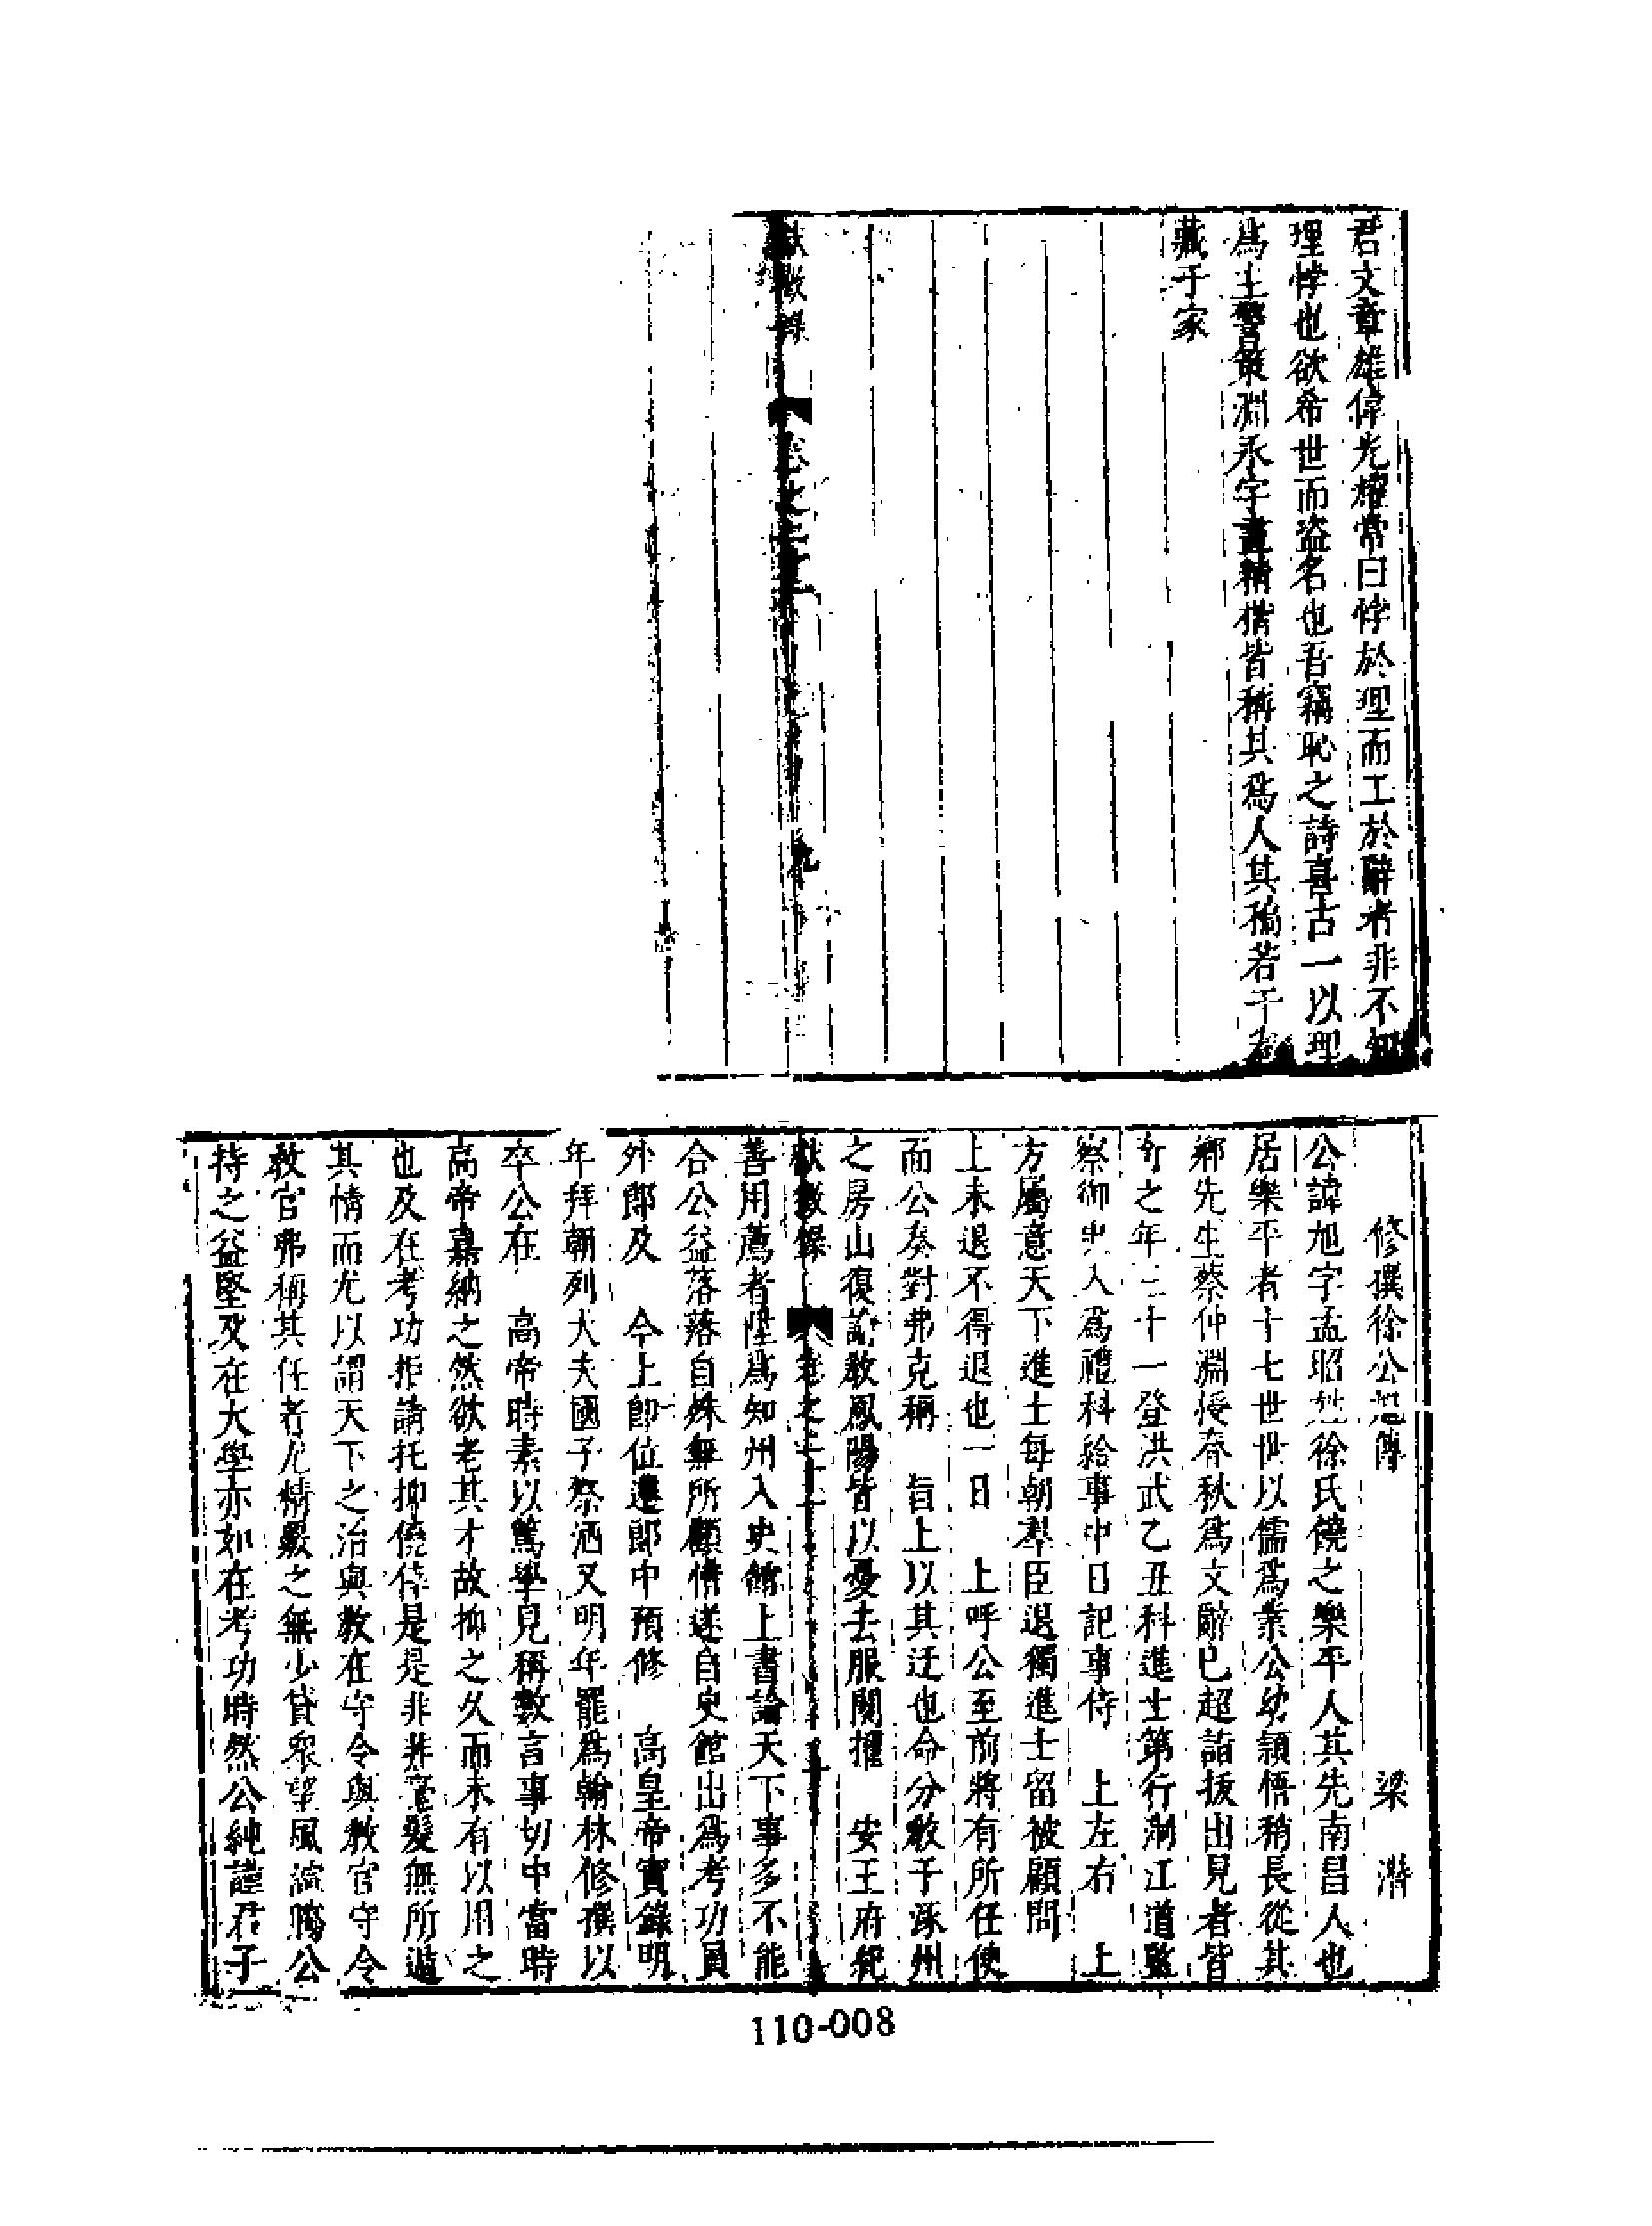 君文章雄偉光燿常曰悖於理而工於辭者非不知
理悖也欲希世而盜名也吾竊恥之詩喜古一以理
為主警策淵永字畫精楷皆稱其為人其稿若干卷
藏于家
獻徵錄 卷之二十一 九
修撰徐公旭傳 梁潛
公諱旭字孟昭姓徐氏饒之樂平人其先南昌人也
居樂平者十七世世以儒為業公幼穎悟稍長從其
鄉先生蔡仲淵授春秋為文辭已超詣拔出見者皆
奇之年三十一登洪武乙丑科進士第行淛江道監
察御史入為禮科給事中日記事侍 上左右 上
方屬意天下進士每朝羣臣退獨進士留被顧問
上未退不得退也一日 上呼公至前將有所任使
而公奏對弗克稱 旨上以其迂也命分教于涿州
之房山復諭教鳳陽皆以憂去服闋擢 安王府紀
獻徵錄 卷之二十一 十
善用薦者陞為知州入史館上書論天下事多不能
合公益落落自殊無所顧惜遂自史館出為考功員
外郎及 今上即位遷郎中預修 高皇帝實錄明
年拜朝列大夫國子祭酒又明年罷為翰林修撰以
卒公在 高帝時素以篤學見稱數言事切中當時
高帝嘉納之然欲老其才故抑之久而未有以用之
也及在考功拒請托抑僥倖是是非非毫髮無所遁
其情而尤以謂天下之治與教在守令與教官守令
教官弗稱其任者尤精覈之無少貸衆望風 公
持之益堅及在大學亦如在考功時然公純謹君子
110-008